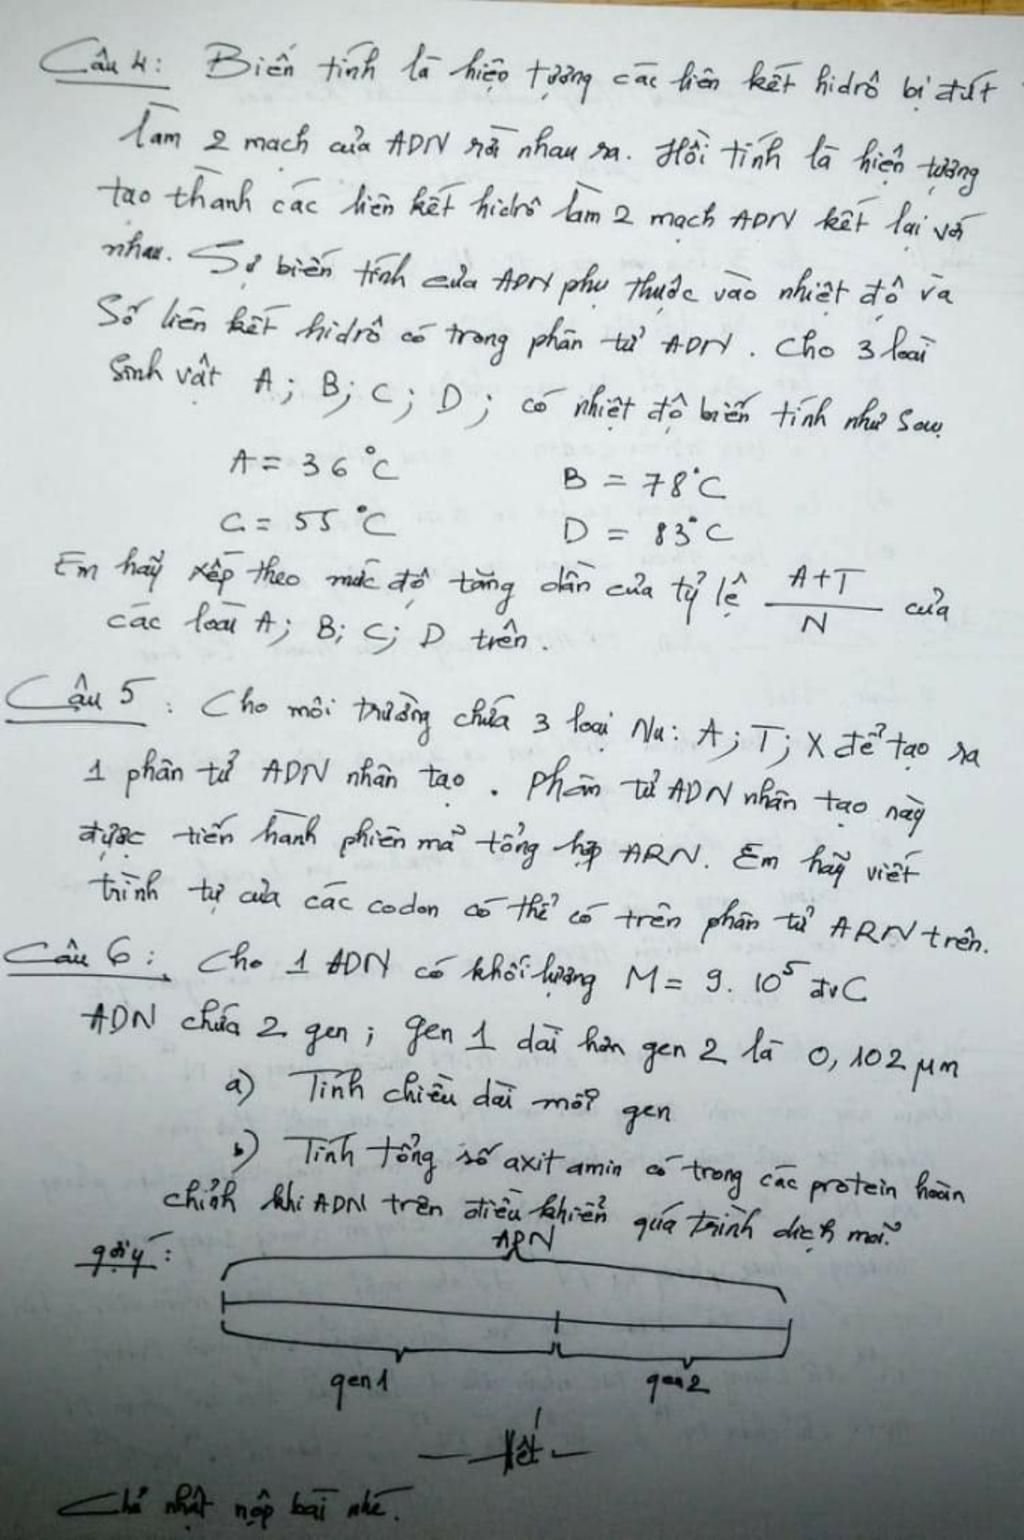 Câu 4: Biến tính là hiện tượng các liên kết hidrô bị đứt
làm 2 mạch của ADN rời nhau ra. Hồi tính là hiện tượng
tạo thành các liên kết hidrô làm 2 mạch ADN kết lại với
nhau. Sự biến tính của ADN phụ thuộc vào nhiệt độ và
Số liên kết hidrô có trong phân tử ADN. Cho 3 loài
Sinh vật A; B; C; D; có nhiệt độ biến tính như sau
A = 36°C B = 78°C
C = 55°C D = 83°C
Em hãy xếp theo mức độ tăng dần của tỷ lệ A+T/N của
các loài A; B; C; D trên.
Câu 5: Cho môi trường chứa 3 loại Nu: A; T; X để tạo ra
1 phân tử ADN nhân tạo. Phân tử ADN nhân tạo này
được tiến hành phiên mã tổng hợp ARN. Em hãy viết
trình tự của các codon có thể có trên phân tử ARN trên.
Câu 6: Cho 1 ADN có khối lượng M = 9.10⁵ đvC
ADN chứa 2 gen; gen 1 dài hơn gen 2 là 0,102 µm
a) Tính chiều dài mỗi gen
b) Tính tổng số axit amin có trong các protein hoàn
chỉnh khi ADN trên điều khiển quá trình dịch mã.
gợi ý: ADN
gen1 gen2
— Hết —
Chủ nhật nộp bài nhé.